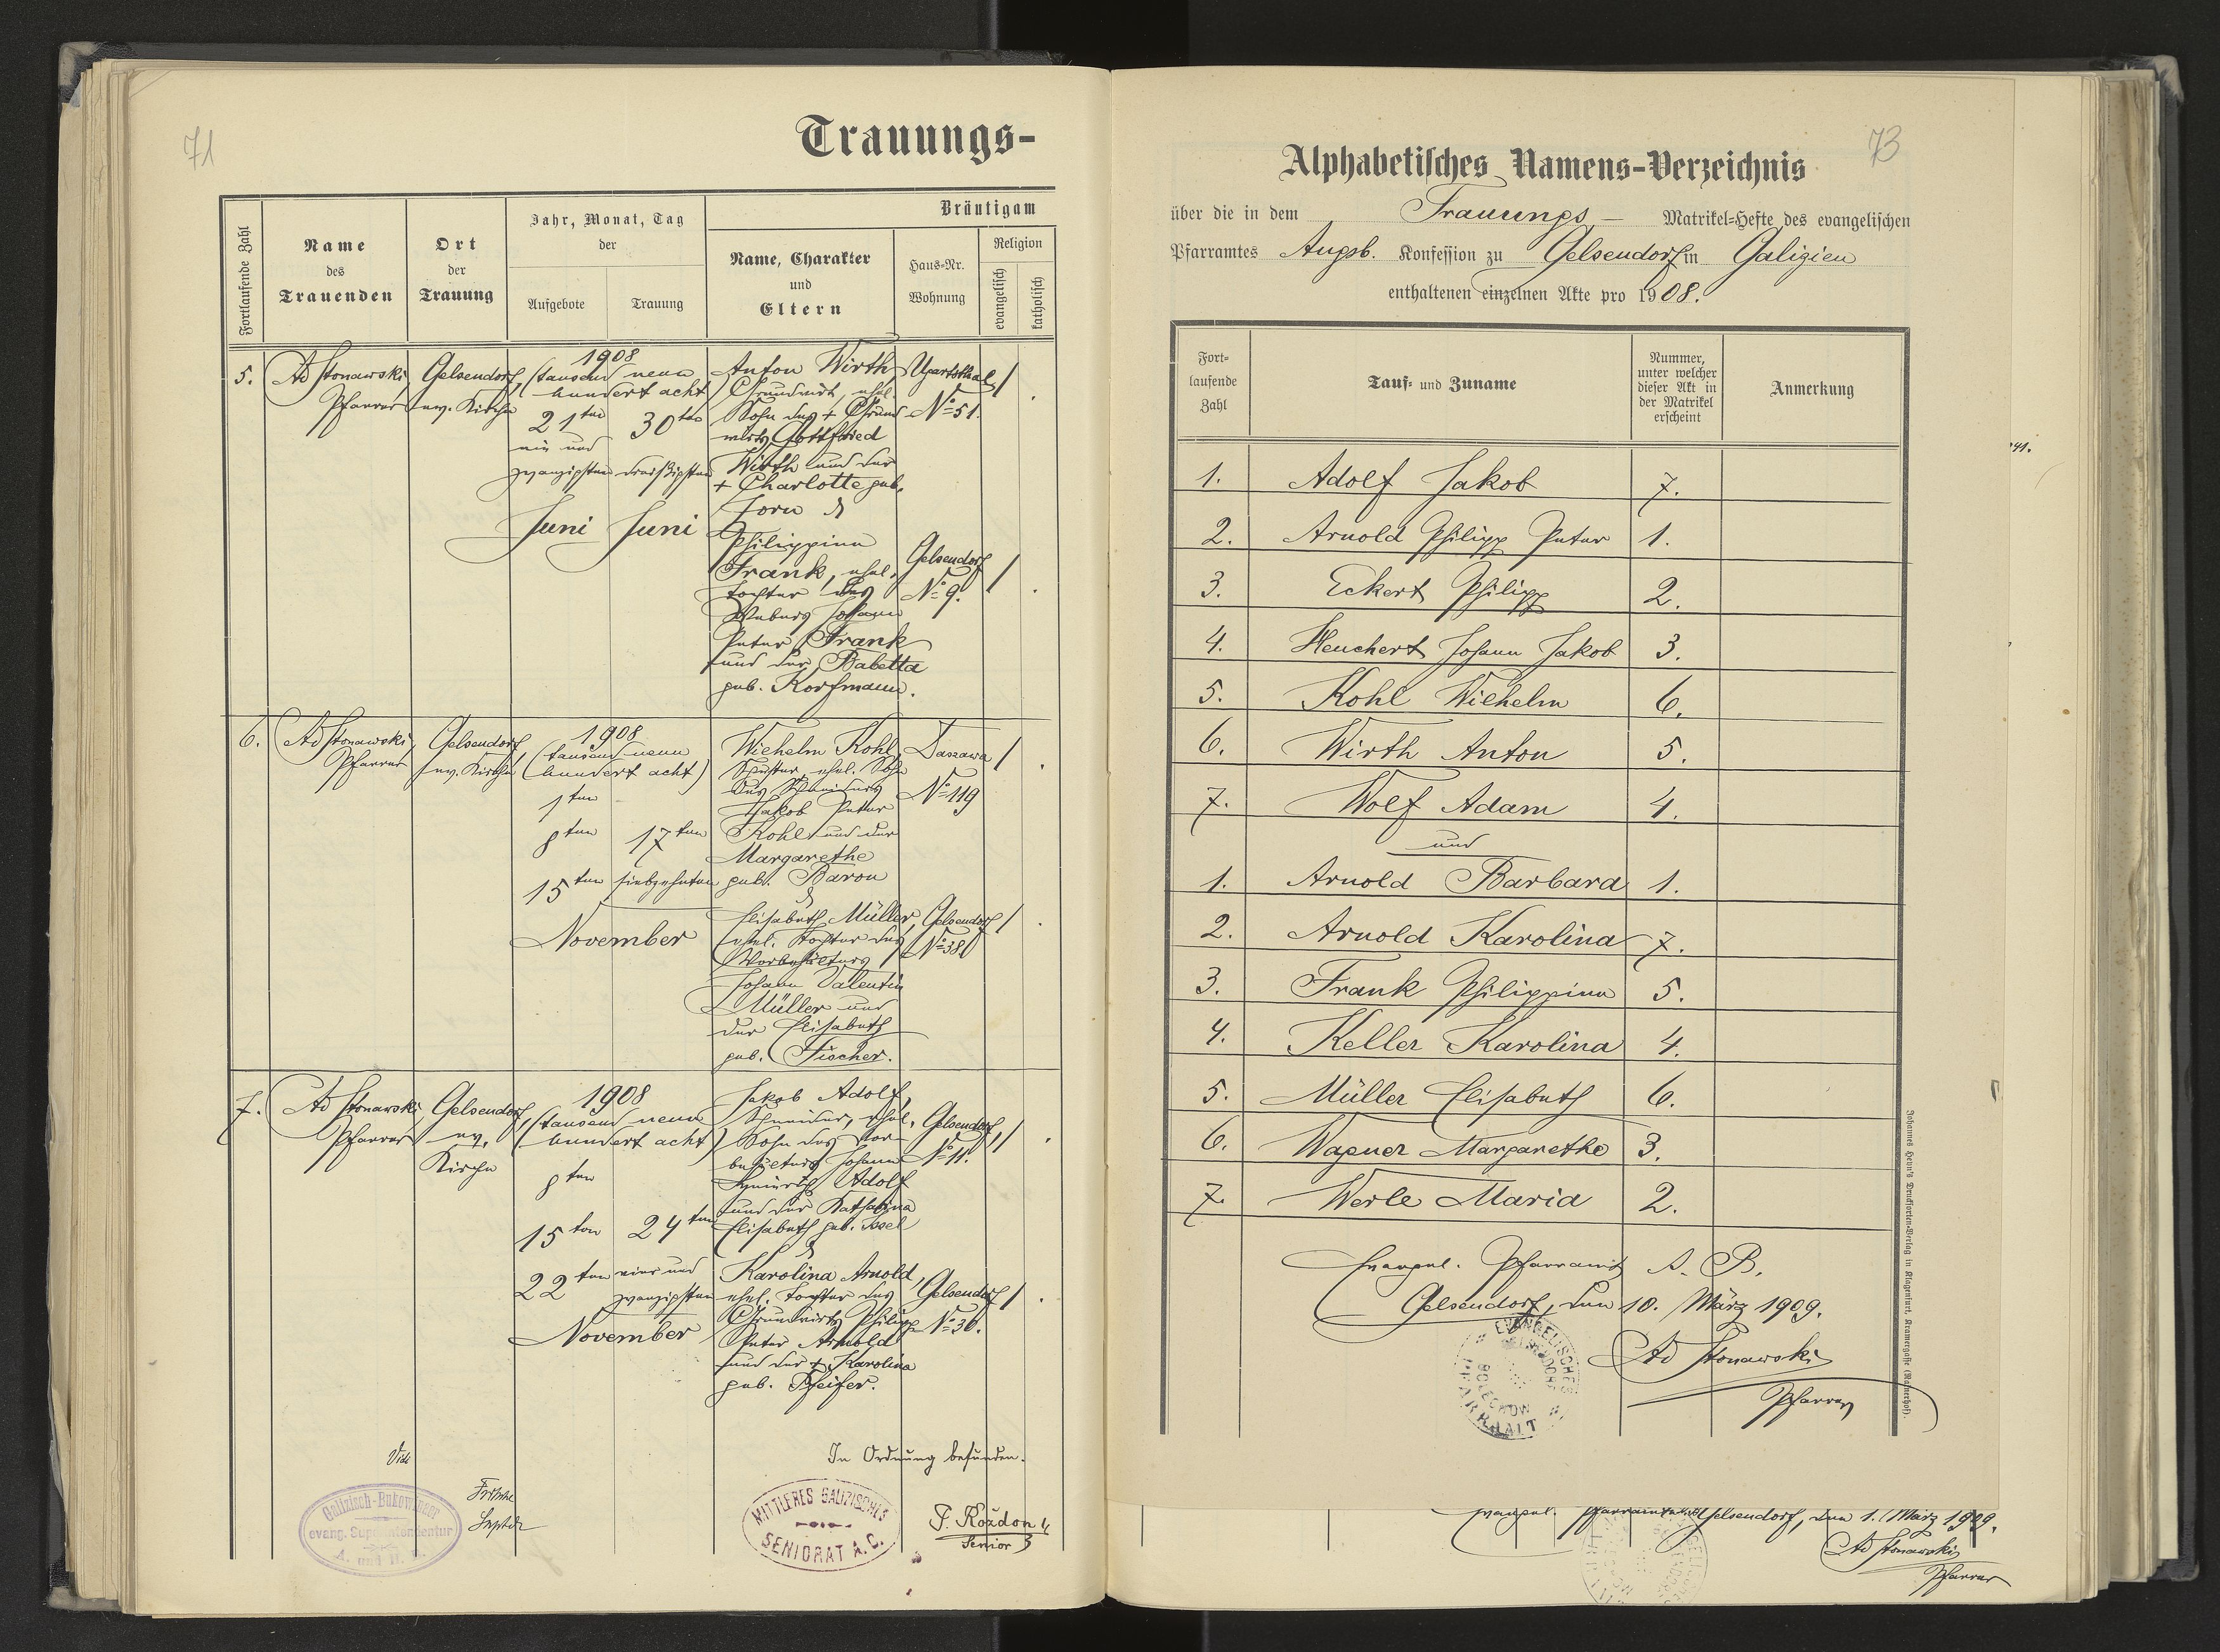 71
Trauungs-
Fortlaufende Zahl
Name
des
Trauenden
Ort
der
Trauung
Jahr, Monat, Tag
der
Aufgebote
Trauung
Bräutigam
Name, Charakter
und
Eltern
Haus-Nr.
Wohnung
Religion
evangelisch
katholisch
5.
Ad Stonawski,
Pfarrer
Gelsendorf,
ev. Kirche
1908
(tausend neun
hundert acht)
21ten 30ten
ein und
zwanzigsten dreißigsten
Juni Juni
Anton Wirth,
Grundwirt, ehel.
Sohn des + Grund-
wirts Gottfried
Wirth und der
+ Charlotte geb.
Jorn &
Philippina
Frank, ehel.
Tochter des
Webers Johann
Peter Frank
und der Babetta
geb. Korfmann.
Ugartsthal
No 51.
/
Gelsendorf
No 9.
/
6.
Ad Stonawski,
Pfarrer
Gelsendorf,
ev. Kirche
1908
(tausend neun
hundert acht)
1ten
8ten 17ten
15ten siebzehnten
November
Wilhelm Kohl,
Schuster, ehel. Sohn
des Schneiders
Jakob Peter
Kohl und der
Margarethe
geb. Baron
&
Elisabeth Müller,
ehel. Tochter des
Vorbehälters
Johann Valentin
Müller und
der Elisabeth
geb. Fischer.
Daszawa
No 119
/
Gelsendorf
No 38
/
7.
Ad Stonawski,
Pfarrer
Gelsendorf,
ev.
Kirche
1908
(tausend neun
hundert acht)
8ten
15ten 24ten
22ten vier und
zwanzigsten
November
Jakob Adolf,
Schneider, ehel.
Sohn des Vor-
behälters Johann
Heinrich Adolf
und der Katharina
Elisabeth geb. Issel
&
Karolina Arnold,
ehel. Tochter des
Grundwirts Philipp
Peter Arnold
und der + Karolina
geb. Pfeifer.
Gelsendorf,
No 11.
/
Gelsendorf
No 30.
/
Vidi
Galizisch-Bukowinaer
evang. Superintendentur
A. und H. B.
In Ordnung befunden.
MITTLERES GALIZISCHES
SENIORAT A.C.
F. Kozdon
Senior
73
Alphabetisches Namens-Verzeichnis
über die in dem Trauungs- Matrikel-Hefte des evangelischen
Pfarramtes Augsb. Konfession zu Gelsendorf in Galizien
enthaltenen einzelnen Akte pro 1908.
Fort-
laufende
Zahl
Tauf- und Zuname
Nummer,
unter welcher
dieser Akt in
der Matrikel
erscheint
Anmerkung
1. Adolf Jakob 7.
2. Arnold Philipp Peter 1.
3. Eckert Philipp 2.
4. Heuchert Johann Jakob 3.
5. Kohl Wilhelm 6.
6. Wirth Anton 5.
7. Wolf Adam 4.
und
1. Arnold Barbara 1.
2. Arnold Karolina 7.
3. Frank Philippina 5.
4. Keller Karolina 4.
5. Müller Elisabeth 6.
6. Wagner Margarethe 3.
7. Werle Maria 2.
Evangel. Pfarramt A. B.
Gelsendorf, den 10. März 1909.
EVANGELISCHES
PFARRAMT
Ad Stonawski
Pfarrer
Johannes Heyn's Drucksorten-Verlag in Klagenfurt, Kramergasse (Rainerhof).
evangel. Pfarramt Gelsendorf, den 1. März 1909.
Ad Stonawski
Pfarrer